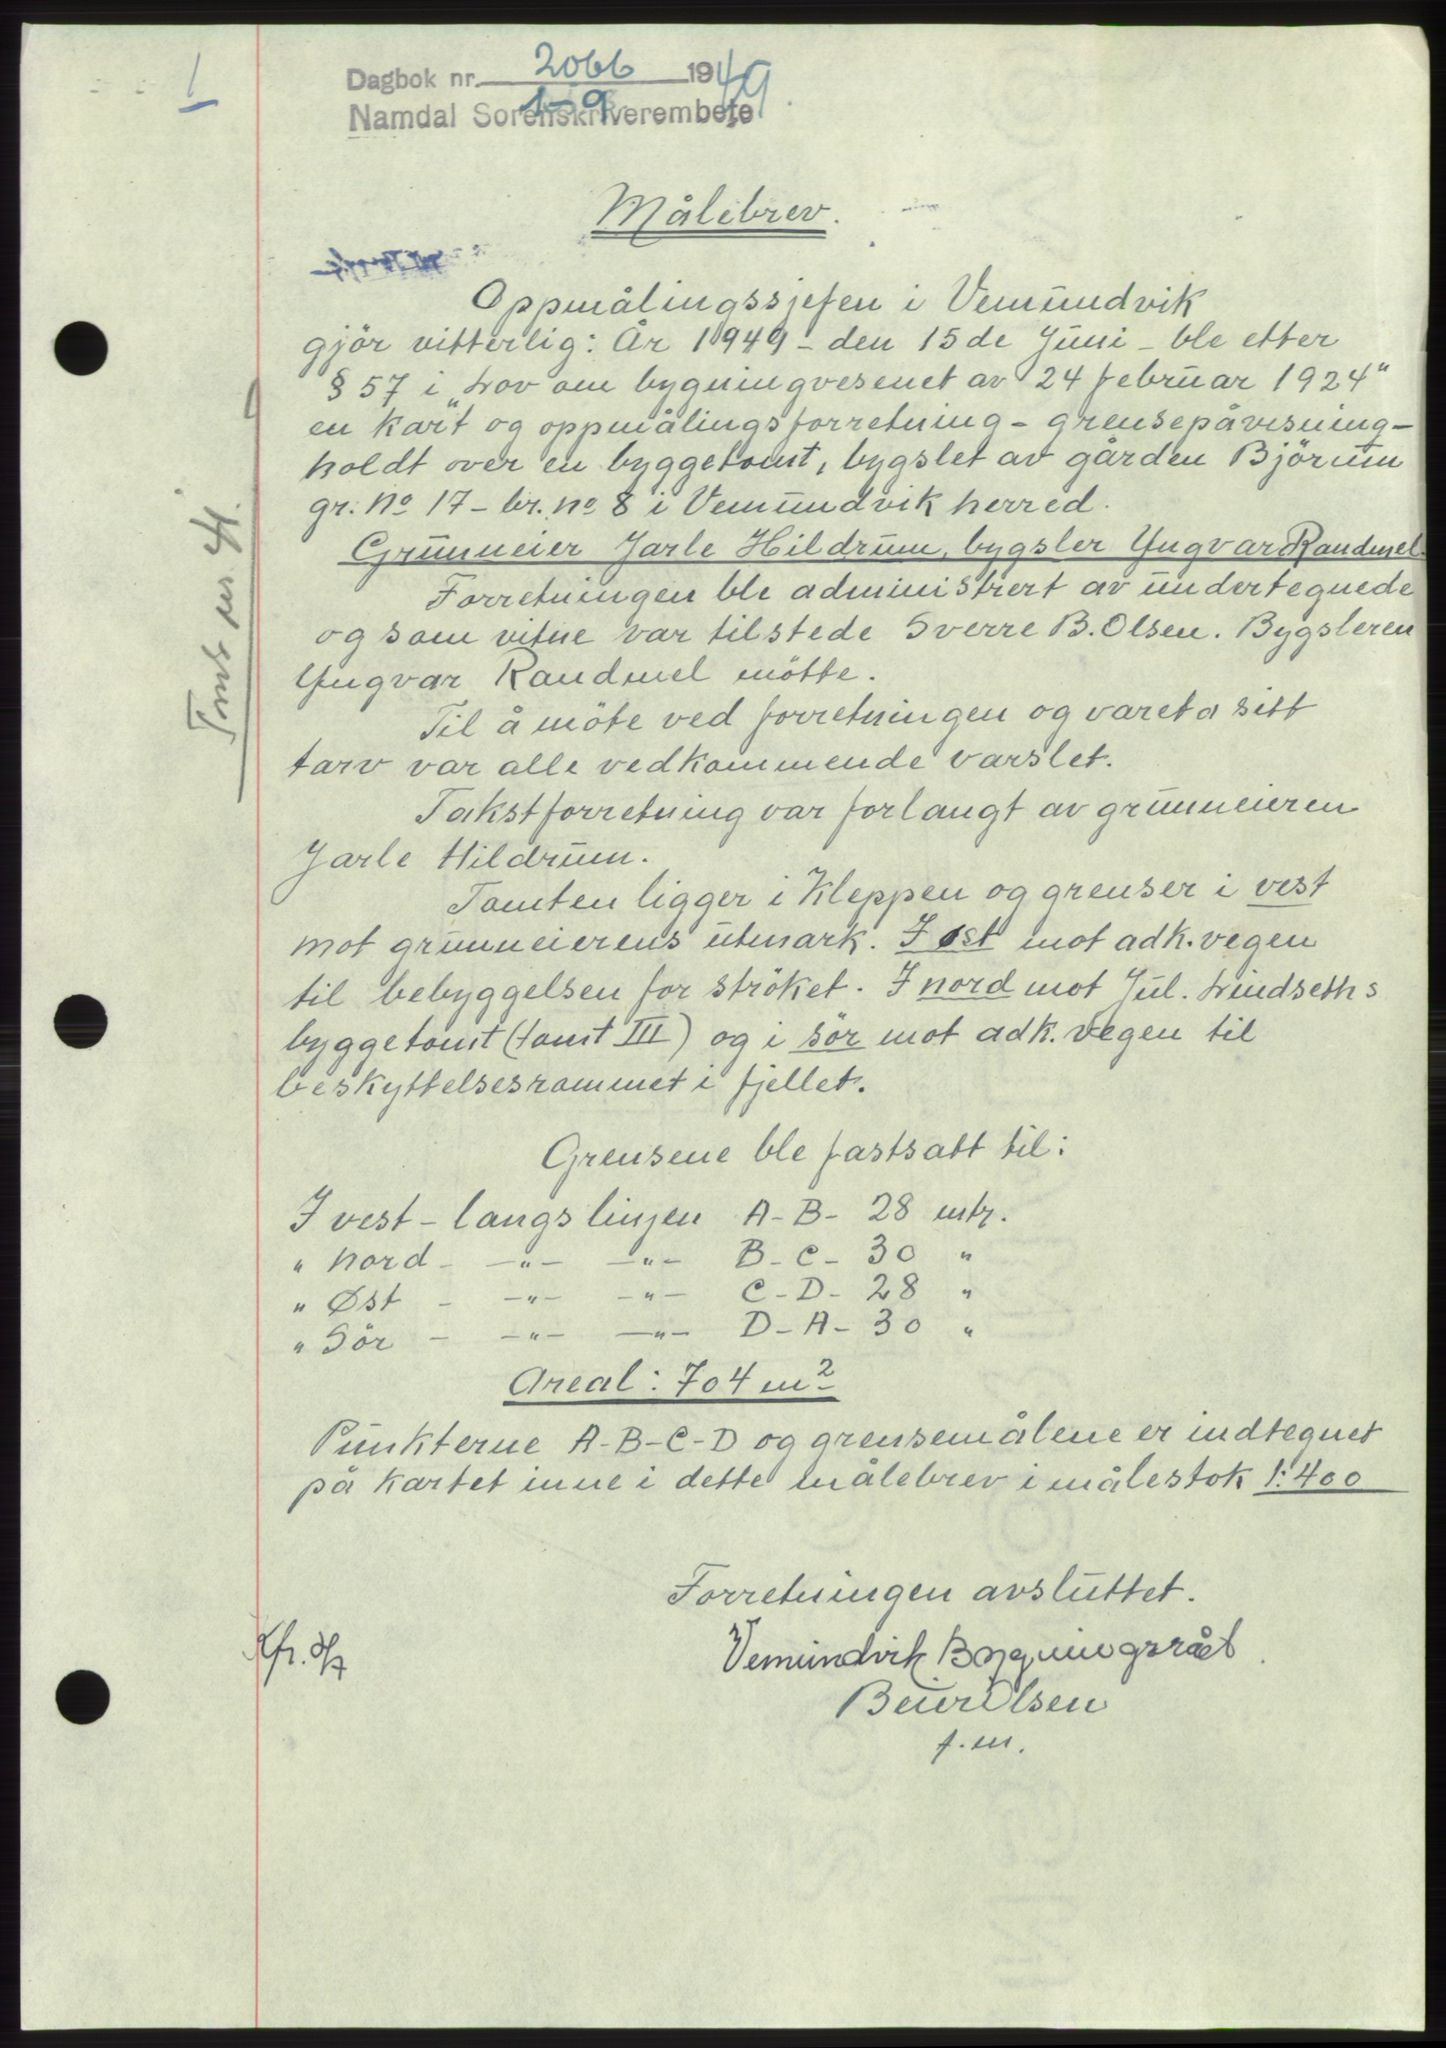 1
Dagbok nr. 2066 1949.
1-9
Namdal Sorenskriverembete
Målebrev.
Oppmålingssjefen i Vemundvik
gjör vitterlig: År 1949 - den 15 de Juni - ble etter
§ 57 i „Lov om bygningvesenet av 24 februar 1924"
en kart og oppmålingsforretning - grensepåvisning -
holdt over en byggetomt, bygslet av gården Björum
gr. No 17 - br. no 8 i Vemundvik herred.
Grunneier Jarle Hildrum, bygsler Yngvar Randmel.
Forretningen ble administrert av undertegnede
og som vitne var tilstede Sverre B. Olsen. Bygsleren
Yngvar Randmel mötte.
Til å möte ved forretningen og vareta sitt
tarv var alle vedkommende varslet.
Takstforretning var forlangt av grunneieren
Jarle Hildrum.
Tomten ligger i Kleppen og grenser i vest
mot grunneierens utmark. I øst mot adk. vegen
til bebyggelsen for ströket. I nord mot Jul. Lindseths
byggetomt (tomt III) og i sör mot adk. vegen til
beskyttelsesrommet i fjellet.
Grensene ble fastsatt til:
I vest - langs linjen A - B - 28 mtr.
" Nord - -"- -"- B - C - 30 "
" Øst - -"- -"- C - D - 28 "
" Sör - -"- -"- D - A - 30 "
Areal: 704 m2
Punkterne A-B-C-D og grensemålene er indtegnet
på kartet inne i dette målebrev i målestok 1:400
Forretningen avsluttet.
Vemundvik Bygningsråd.
Beier Olsen
f.m.
Tomt nr.
Kfr.